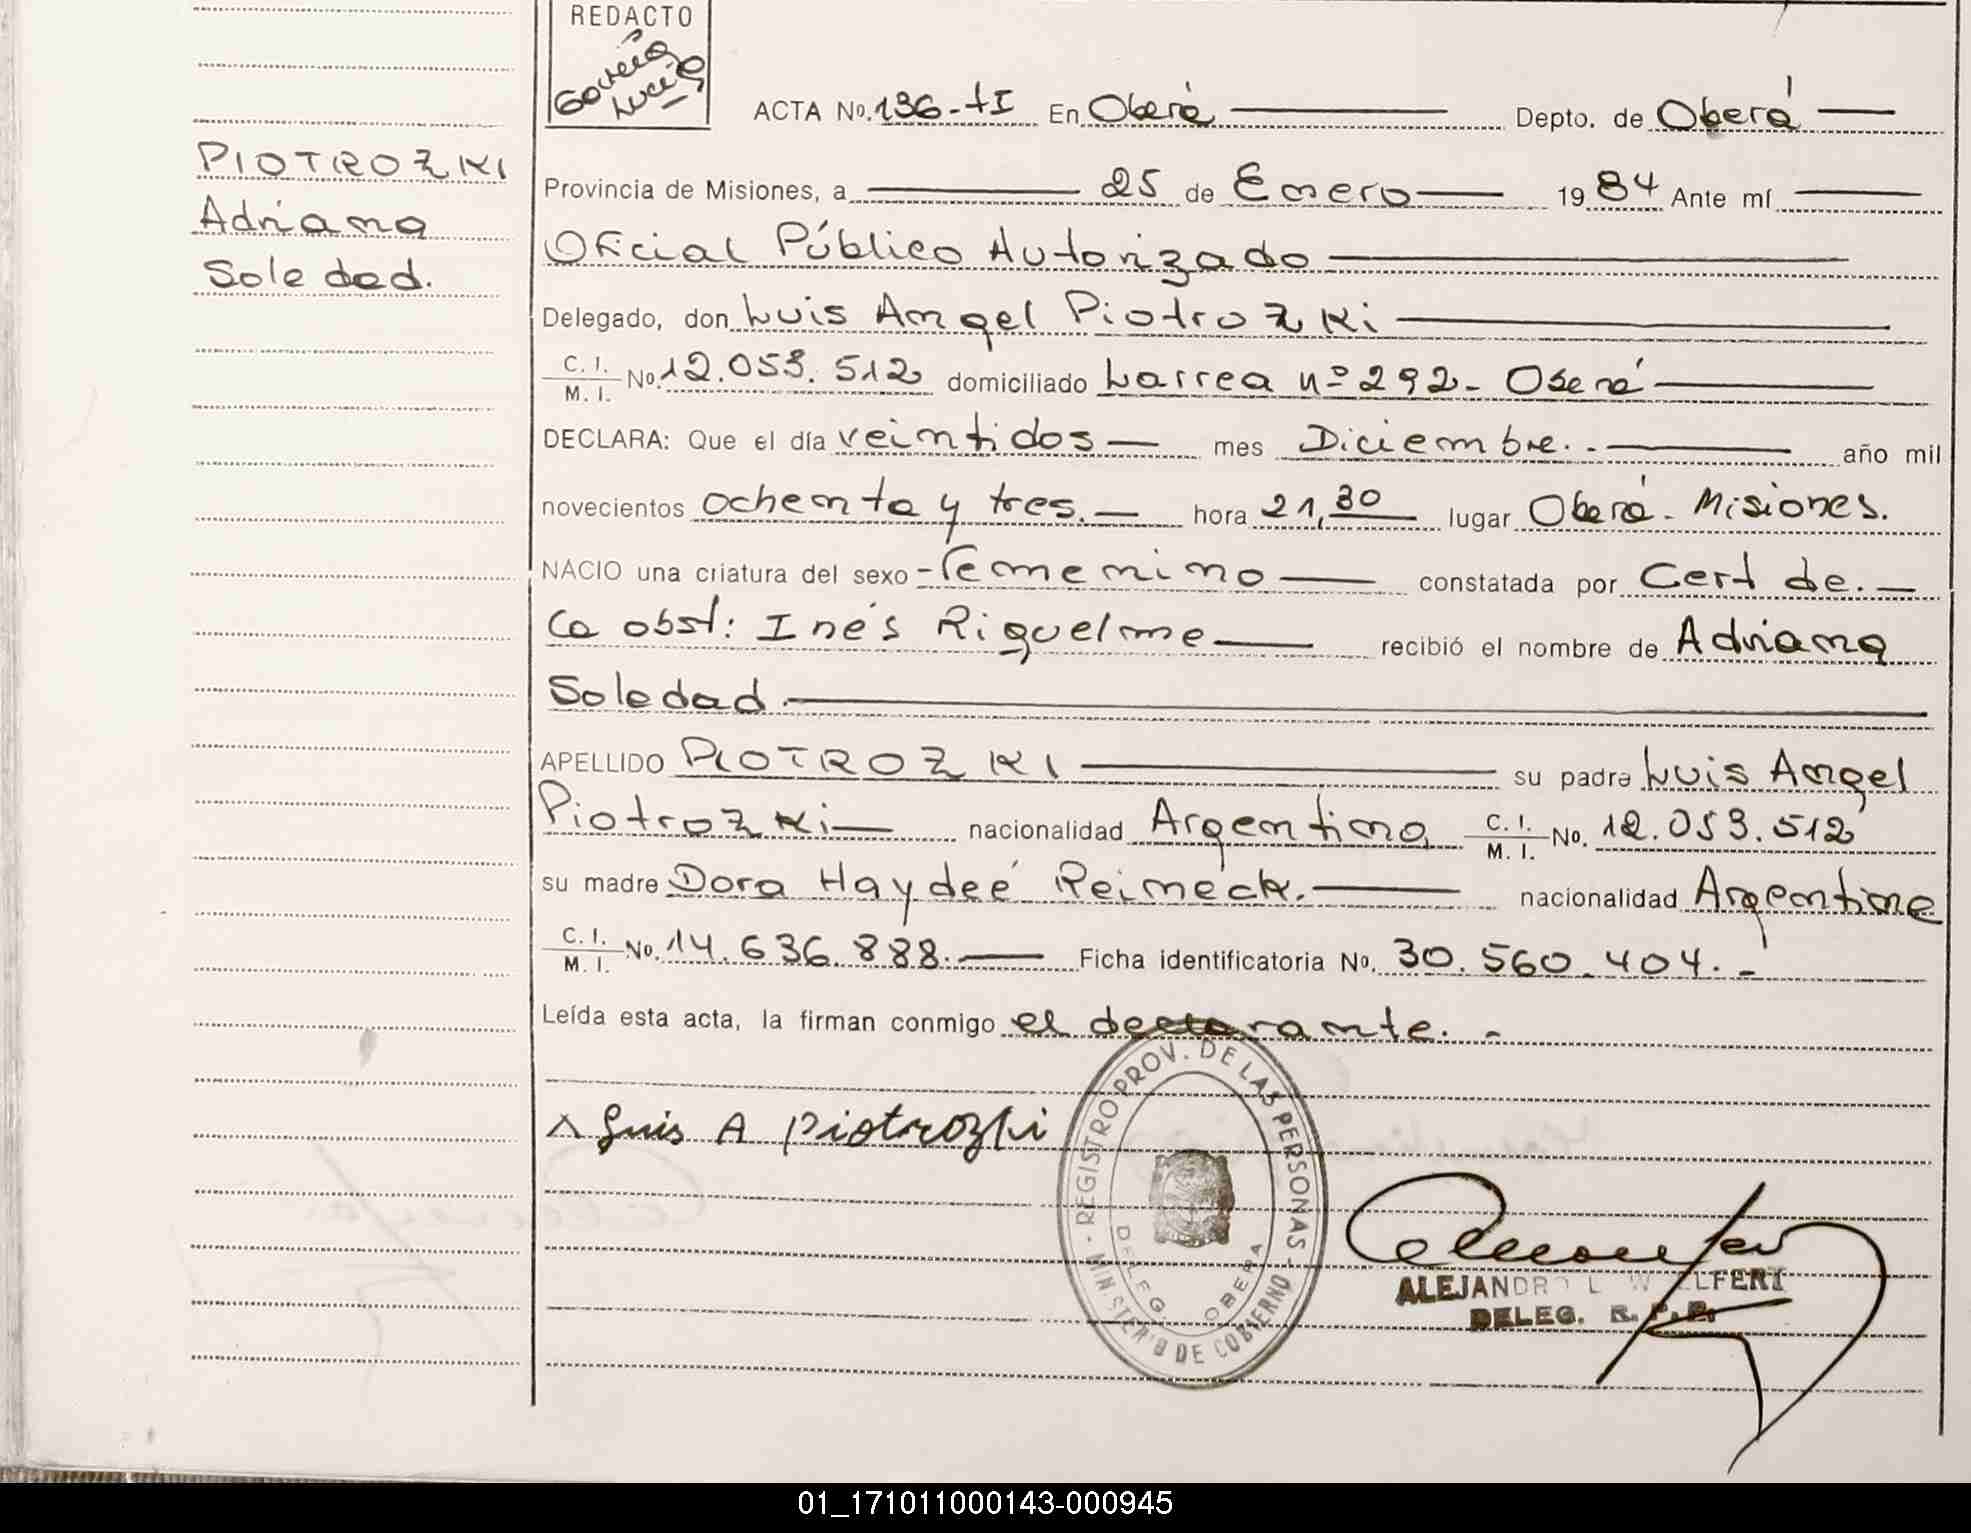 REDACTO
ACTA No. 136-tI En Oberá Depto. de Oberá
PIOTROZKI
Adriana
Soledad.
Provincia de Misiones, a 25 de Enero 1984 Ante mí
Oficial Público Autorizado
Delegado, don Luis Angel Piotrozki
C. I.
M. I. No. 12.053.512 domiciliado Larrea nº 292- Oberá
DECLARA: Que el día veintidos mes Diciembre.- año mil
novecientos ochenta y tres. hora 21,30 lugar Oberá- Misiones.
NACIO una criatura del sexo -Femenino constatada por Cert de.
la obst: Inés Riquelme recibió el nombre de Adriana
Soledad.
APELLIDO PIOTROZKI su padre Luis Angel
Piotrozki nacionalidad Argentina C. I.
M. I. No. 12.053.512
su madre Dora Haydeé Reineck. nacionalidad Argentina
C. I.
M. I. No. 14.636.888. Ficha identificatoria No. 30.560.404.-
Leída esta acta, la firman conmigo el declarante.-
Luis A Piotrozki
REGISTRO PROV. DE LAS PERSONAS
MINISTERIO DE GOBIERNO
DELEG. OBERA
ALEJANDRO L
DELEG. R. P. P.
01_171011000143-000945